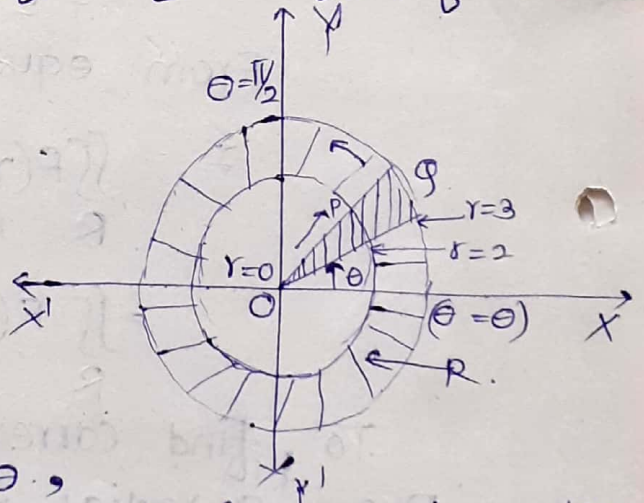 Y
θ=π/2
Q
P
r=3
r=2
r=0
θ
O
X'
(θ=θ)
X
R.
Y'
θ,